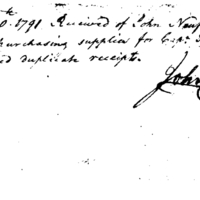 0. 1791 Received of John
purchasing supplies for Capt.
duplicate receipts.
John